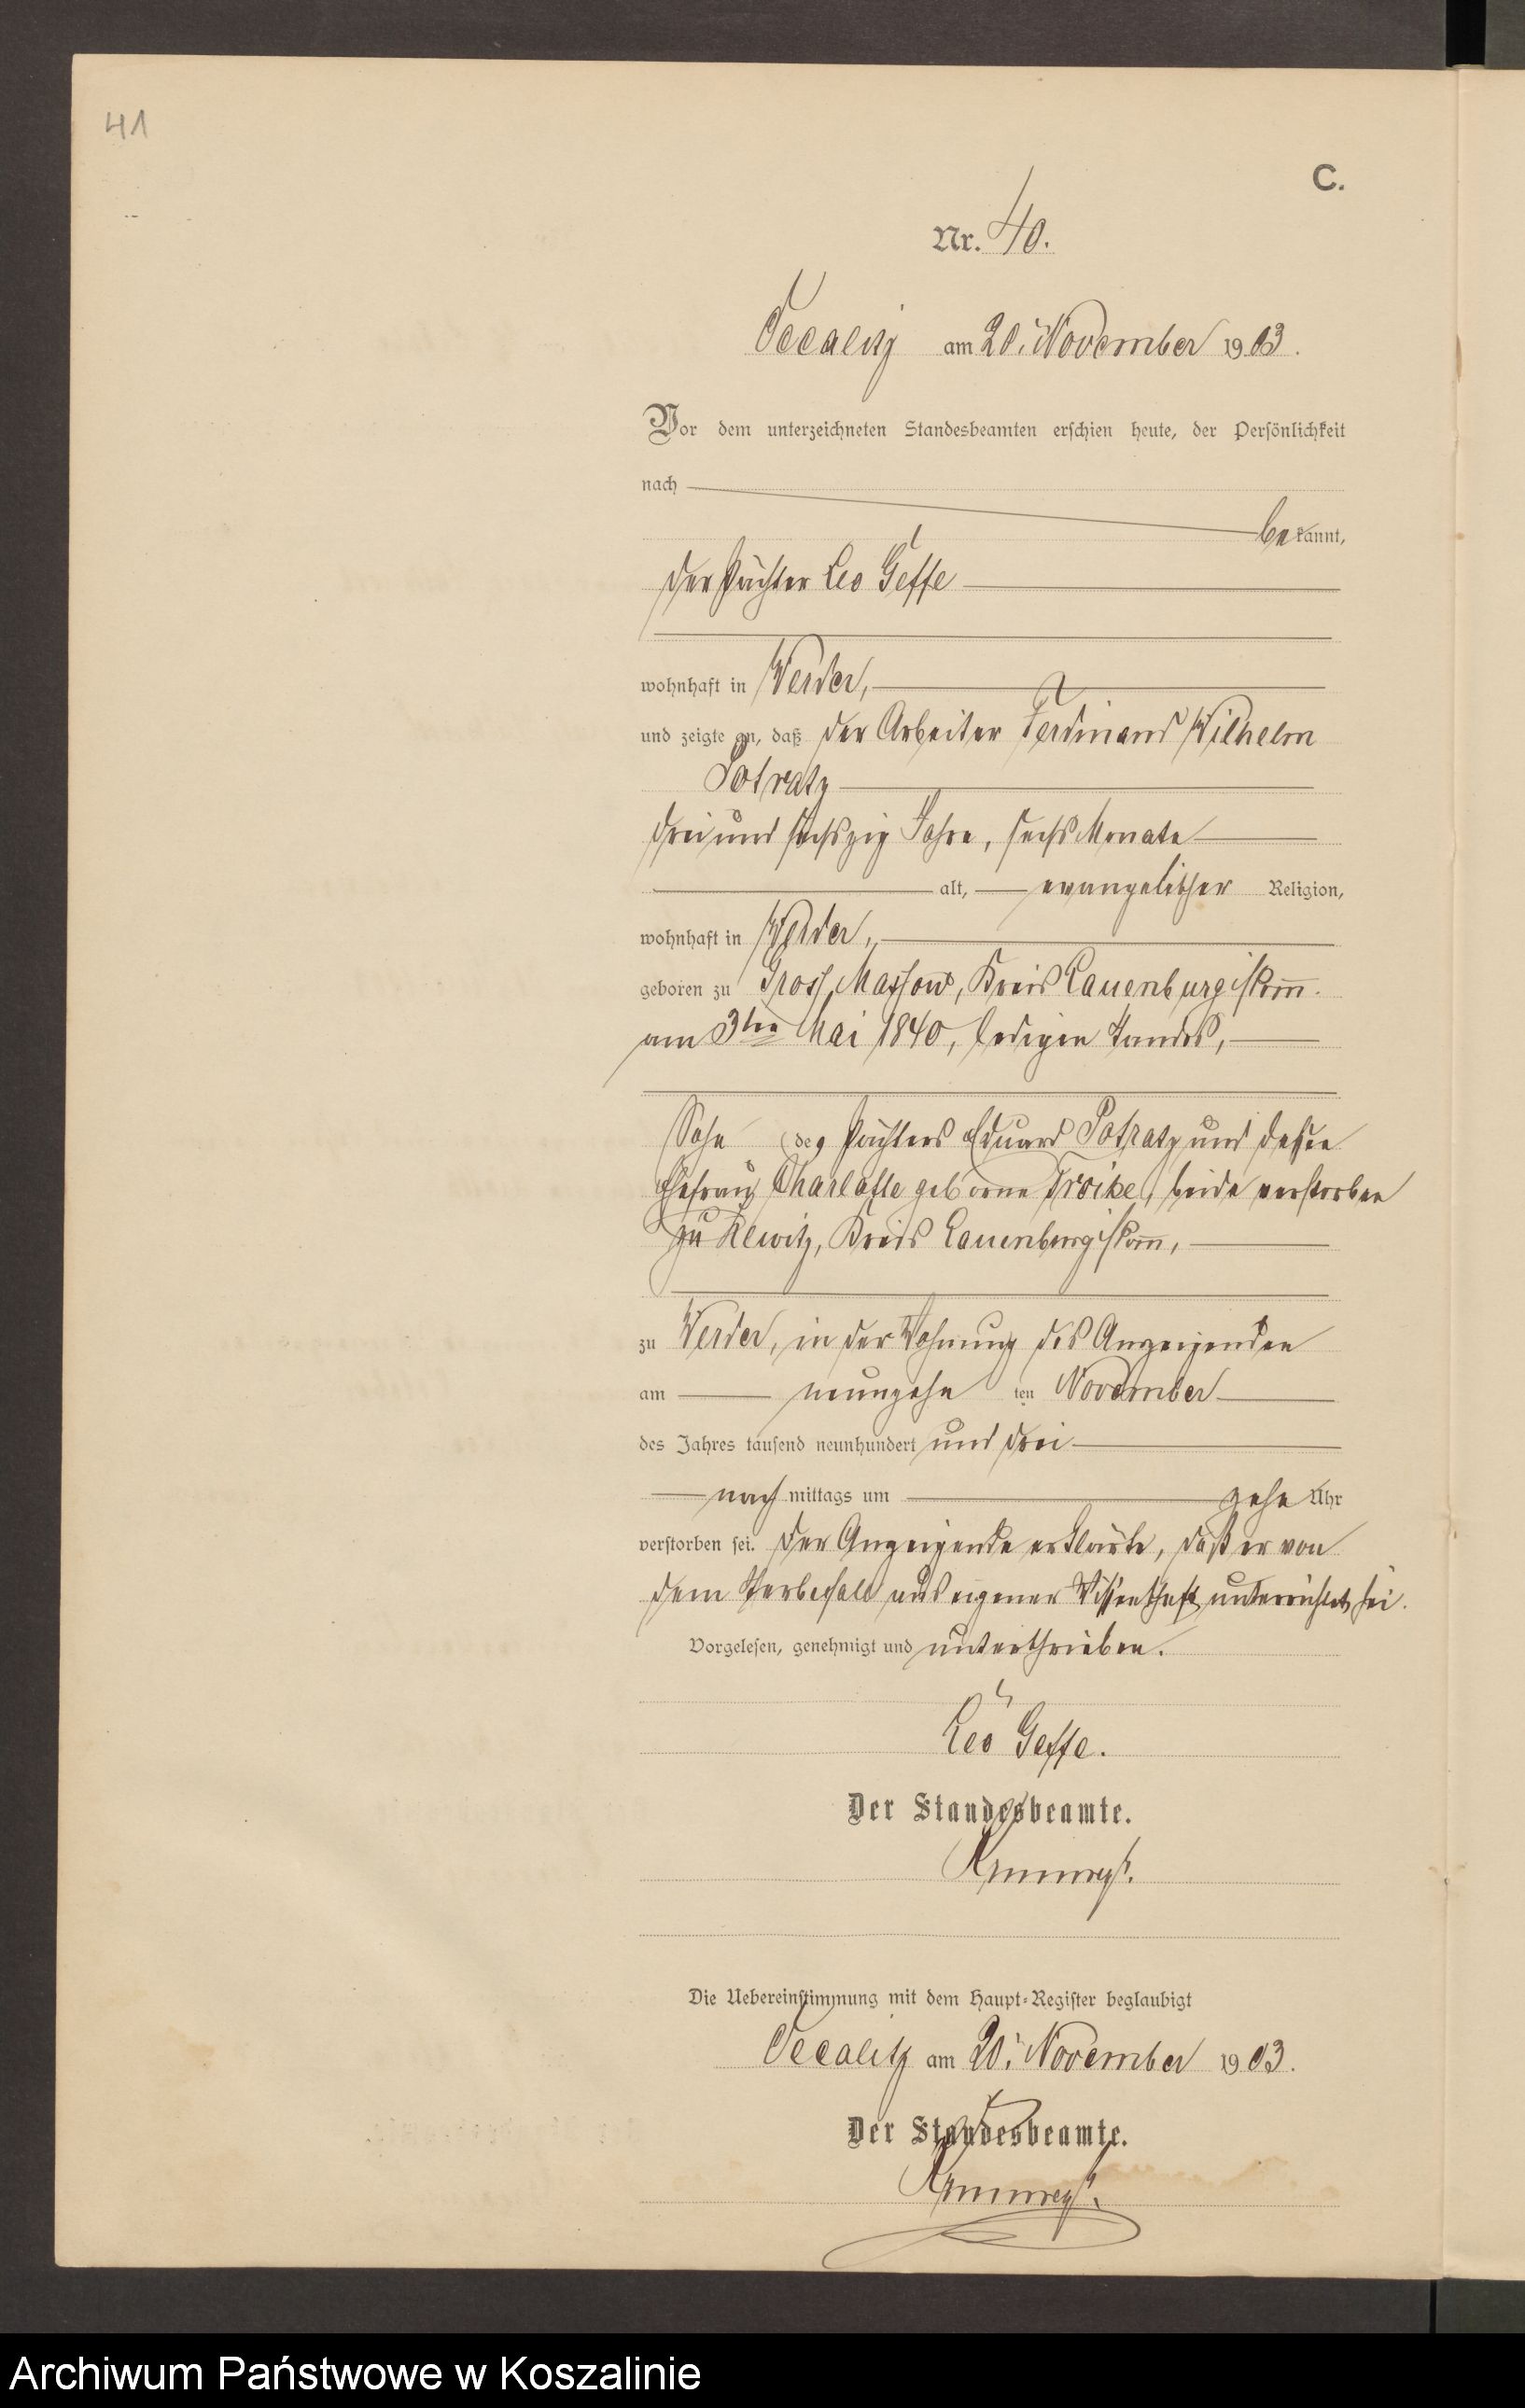 41
C.
Nr. 40.
Vecalitz am 20. November 1903.
Vor dem unterzeichneten Standesbeamten erschien heute, der Persönlichkeit
nach
bekannt,
der Pächter Leo Geffe
wohnhaft in Werder,
und zeigte an, daß der Arbeiter Ferdinand Wilhelm
Potratz
drei und sechszig Jahre, sechs Monate
alt, evangelischer Religion,
wohnhaft in Werder,
geboren zu Gross Massow, Kreis Lauenburg i/Pom.
am 3ten Mai 1840, ledigen Standes,
Sohn des Pächters Eduard Potratz und dessen
Ehefrau Charlotte geborene Troike, beide verstorben
zu Rewitz, Kreis Lauenburg i/Pom,
zu Werder, in der Wohnung des Anzeigenden
am neunzehn ten November
des Jahres tausend neunhundert und drei
nach mittags um zehn Uhr
verstorben sei. Der Anzeigende erklärte, daß er von
dem Sterbefall aus eigener Wissenschaft unterrichtet sei.
Vorgelesen, genehmigt und unterschrieben.
Leo Geffe.
Der Standesbeamte.
Die Uebereinstimmung mit dem Haupt-Register beglaubigt
Vecalitz am 20. November 1903.
Der Standesbeamte.
Archiwum Państwowe w Koszalinie